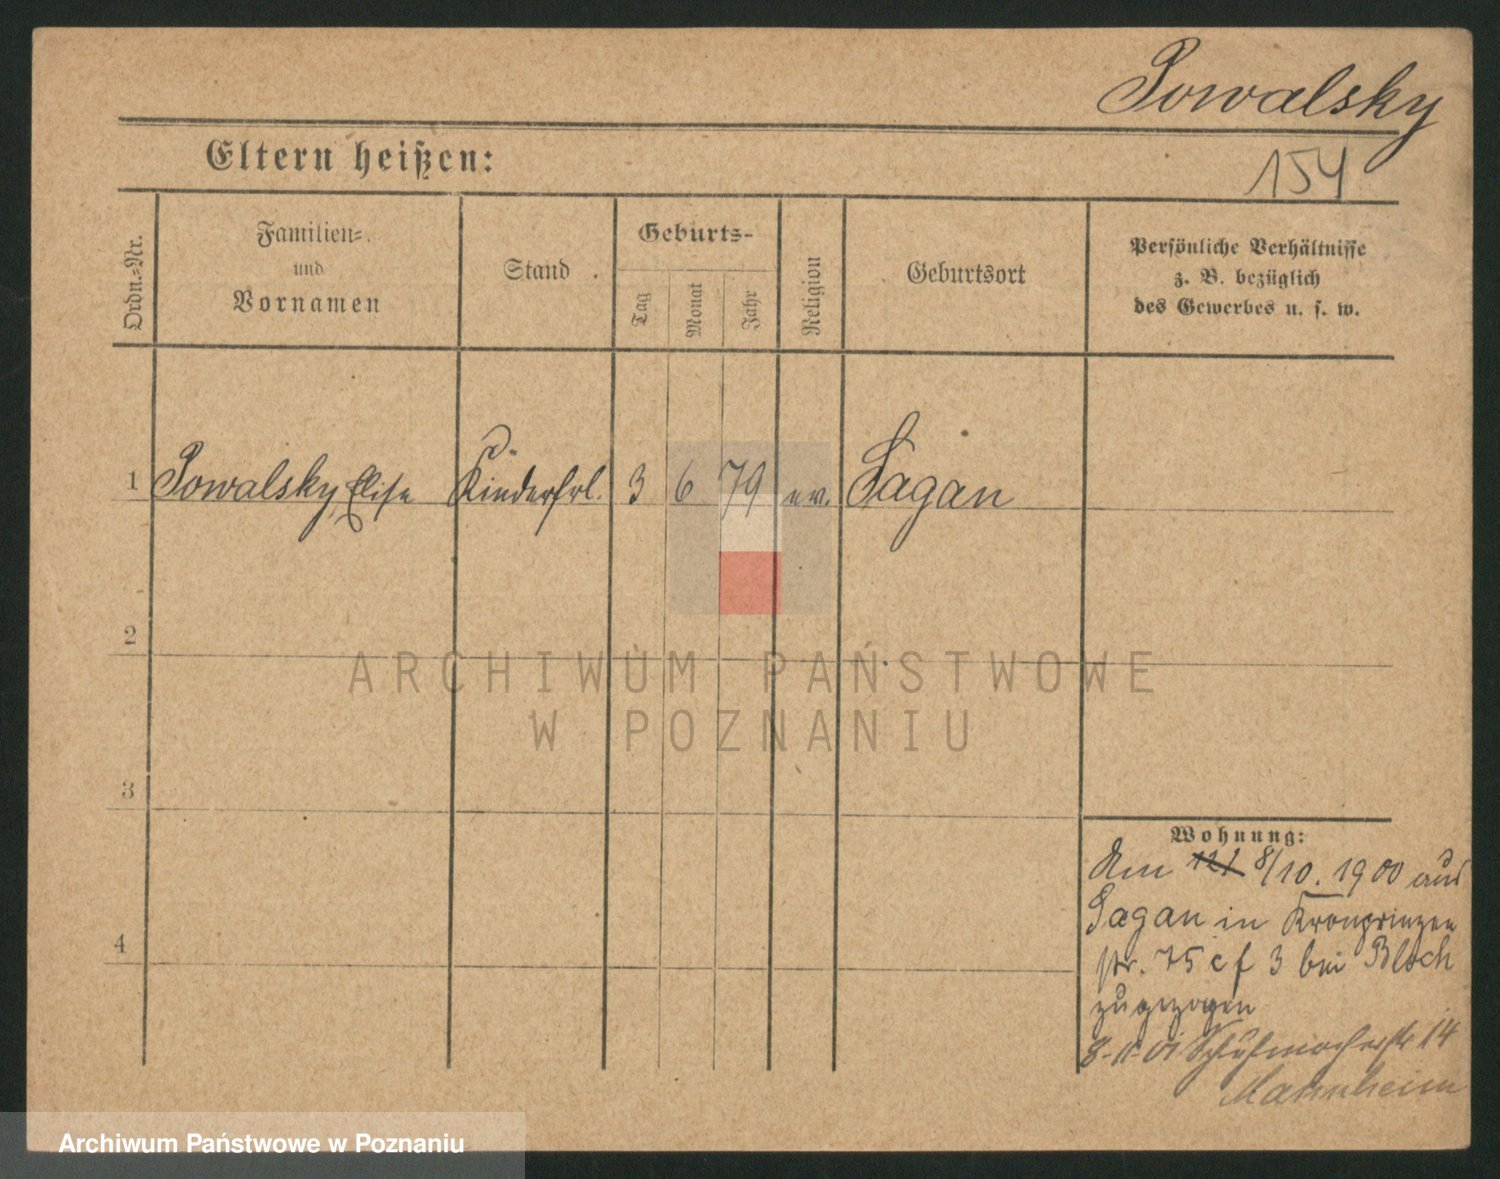 Powalsky
154
Eltern heißen:
Ordn.=Nr.
Familien=
und
Vornamen
Stand
Geburts-
Tag
Monat
Jahr
Religion
Geburtsort
Persönliche Verhältnisse
z. B. bezüglich
des Gewerbes u. s. w.
1 Powalsky, Elise Kinderfrl. 3 6 79 ev. Sagan
2
3
4
Wohnung:
Am 8/10. 1900 aus
Sagan in Kronprinzen
str. 75 c f 3 bei Bloch
zugezogen
8-11-01 Schuhmacherstr 14
Mannheim
ARCHIWUM PAŃSTWOWE
W POZNANIU
Archiwum Państwowe w Poznaniu